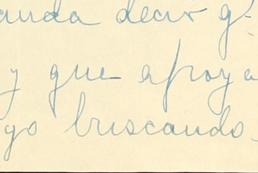 anda decir q.
y que apoya
go buscando.